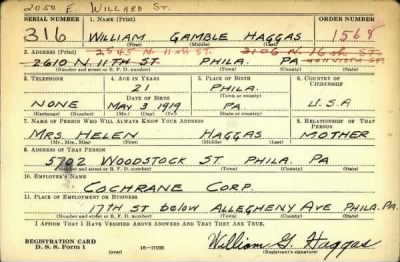 2050 E. WILLARD ST.
SERIAL NUMBER 1. NAME (Print) ORDER NUMBER
316 WILLIAM GAMBLE HAGGAS 1568
(First) (Middle) (Last)
2. ADDRESS (Print) 2545 N. 11TH ST. 3106 N. 16TH ST.
2610 N. 11TH ST. PHILA. PA
(Number and street or R. F. D. number) (Town) (County) (State)
3. TELEPHONE 4. AGE IN YEARS 5. PLACE OF BIRTH 6. COUNTRY OF CITIZENSHIP
21 PHILA.
DATE OF BIRTH (Town or county)
NONE MAY 3 1919 PA. U.S.A
(Exchange) (Number) (Mo.) (Day) (Yr.) (State or country)
7. NAME OF PERSON WHO WILL ALWAYS KNOW YOUR ADDRESS 8. RELATIONSHIP OF THAT PERSON
MRS. HELEN HAGGAS MOTHER
(Mr., Mrs., Miss) (First) (Middle) (Last)
9. ADDRESS OF THAT PERSON
5702 WOODSTOCK ST. PHILA. PA
(Number and street or R. F. D. number) (Town) (County) (State)
10. EMPLOYER'S NAME
COCHRANE CORP.
11. PLACE OF EMPLOYMENT OR BUSINESS
17TH ST below ALLEGHENY AVE PHILA. PA.
(Number and street or R. F. D. number) (Town) (County) (State)
I AFFIRM THAT I HAVE VERIFIED ABOVE ANSWERS AND THAT THEY ARE TRUE.
REGISTRATION CARD
D. S. S. Form 1 (over) 16-17105 William G. Haggas
(Registrant's signature)